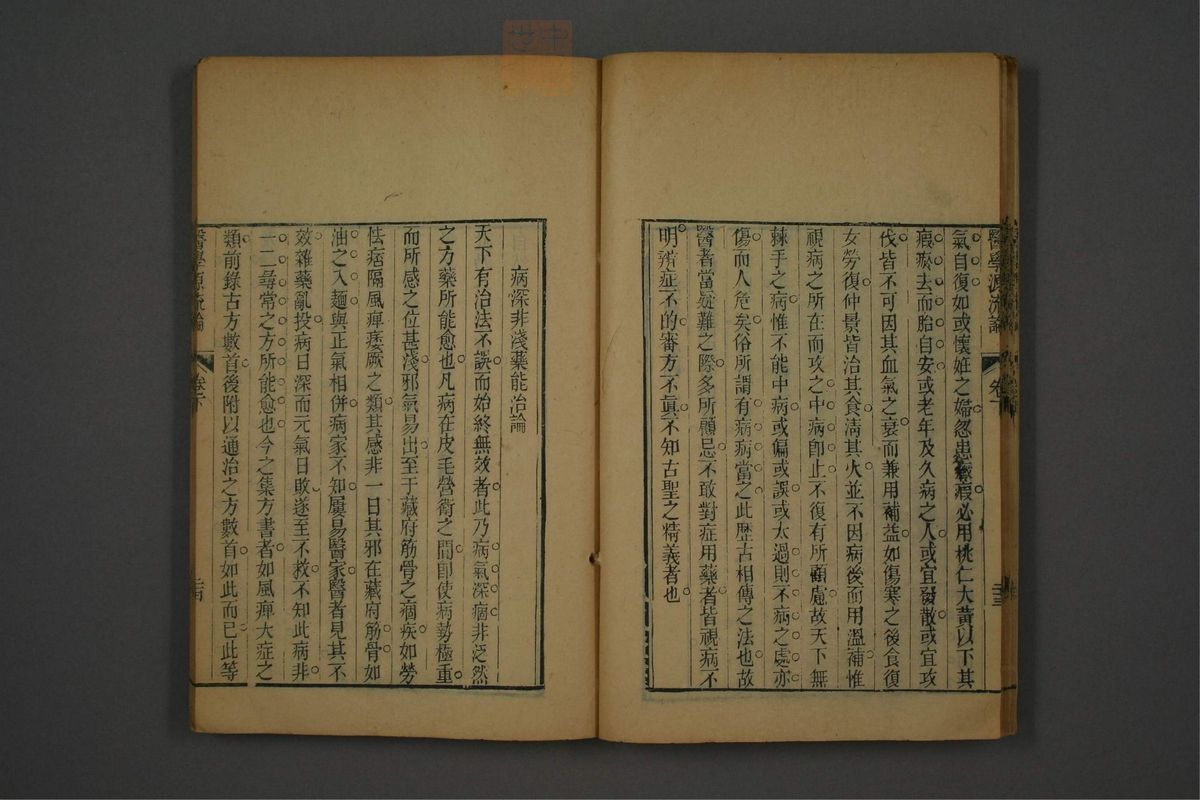 醫學源流論 卷下
氣自復如或懷妊之婦忽患癥瘕必用桃仁大黃以下其
瘕瘀去而胎自安或老年及久病之人或宜發散或宜攻
伐皆不可因其血氣之衰而兼用補益如傷寒之後食復
女勞復仲景皆治其食清其火並不因病後而用溫補惟
視病之所在而攻之中病即止不復有所顧慮故天下無
棘手之病惟不能中病或偏或誤或太過則不病之處亦
傷而人危矣俗所謂有病病當之此歷古相傳之法也故
醫者當疑難之際多所顧忌不敢對症用藥者皆視病不
明辨症不的審方不眞不知古聖之精義者也
病深非淺藥能治論
天下有治法不誤而始終無效者此乃病氣深痼非泛然
之方藥所能愈也凡病在皮毛營衛之間即使病勢極重
而所感之位甚淺邪氣易出至于藏府筋骨之痼疾如勞
怯痞隔風痺痿厥之類其感非一日其邪在藏府筋骨如
油之入麵與正氣相併病家不知屢易醫家醫者見其不
效雜藥亂投病日深而元氣日敗遂至不救不知此病非
一二尋常之方所能愈也今之集方書者如風痺大症之
類前錄古方數首後附以通治之方數首如此而已此等
醫學源流論 卷下